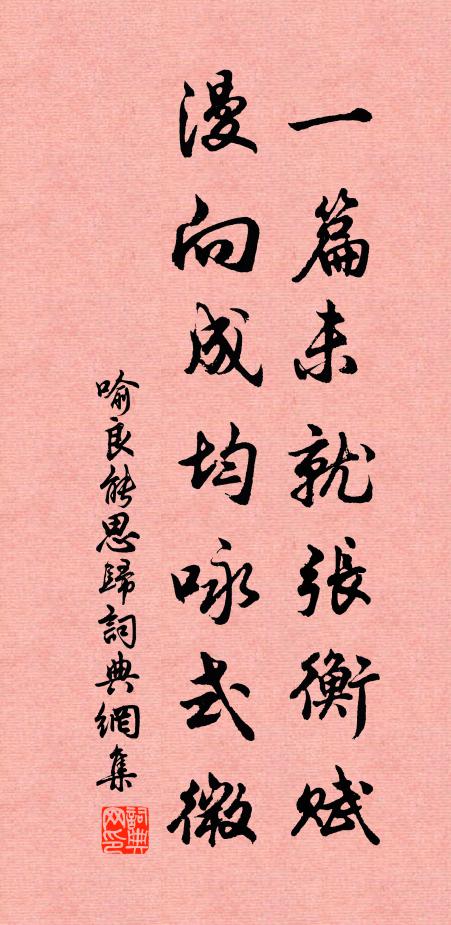 一篇未就張衡赋
漫向成均咏式微
喻良能思歸詞典網集
詞典网印